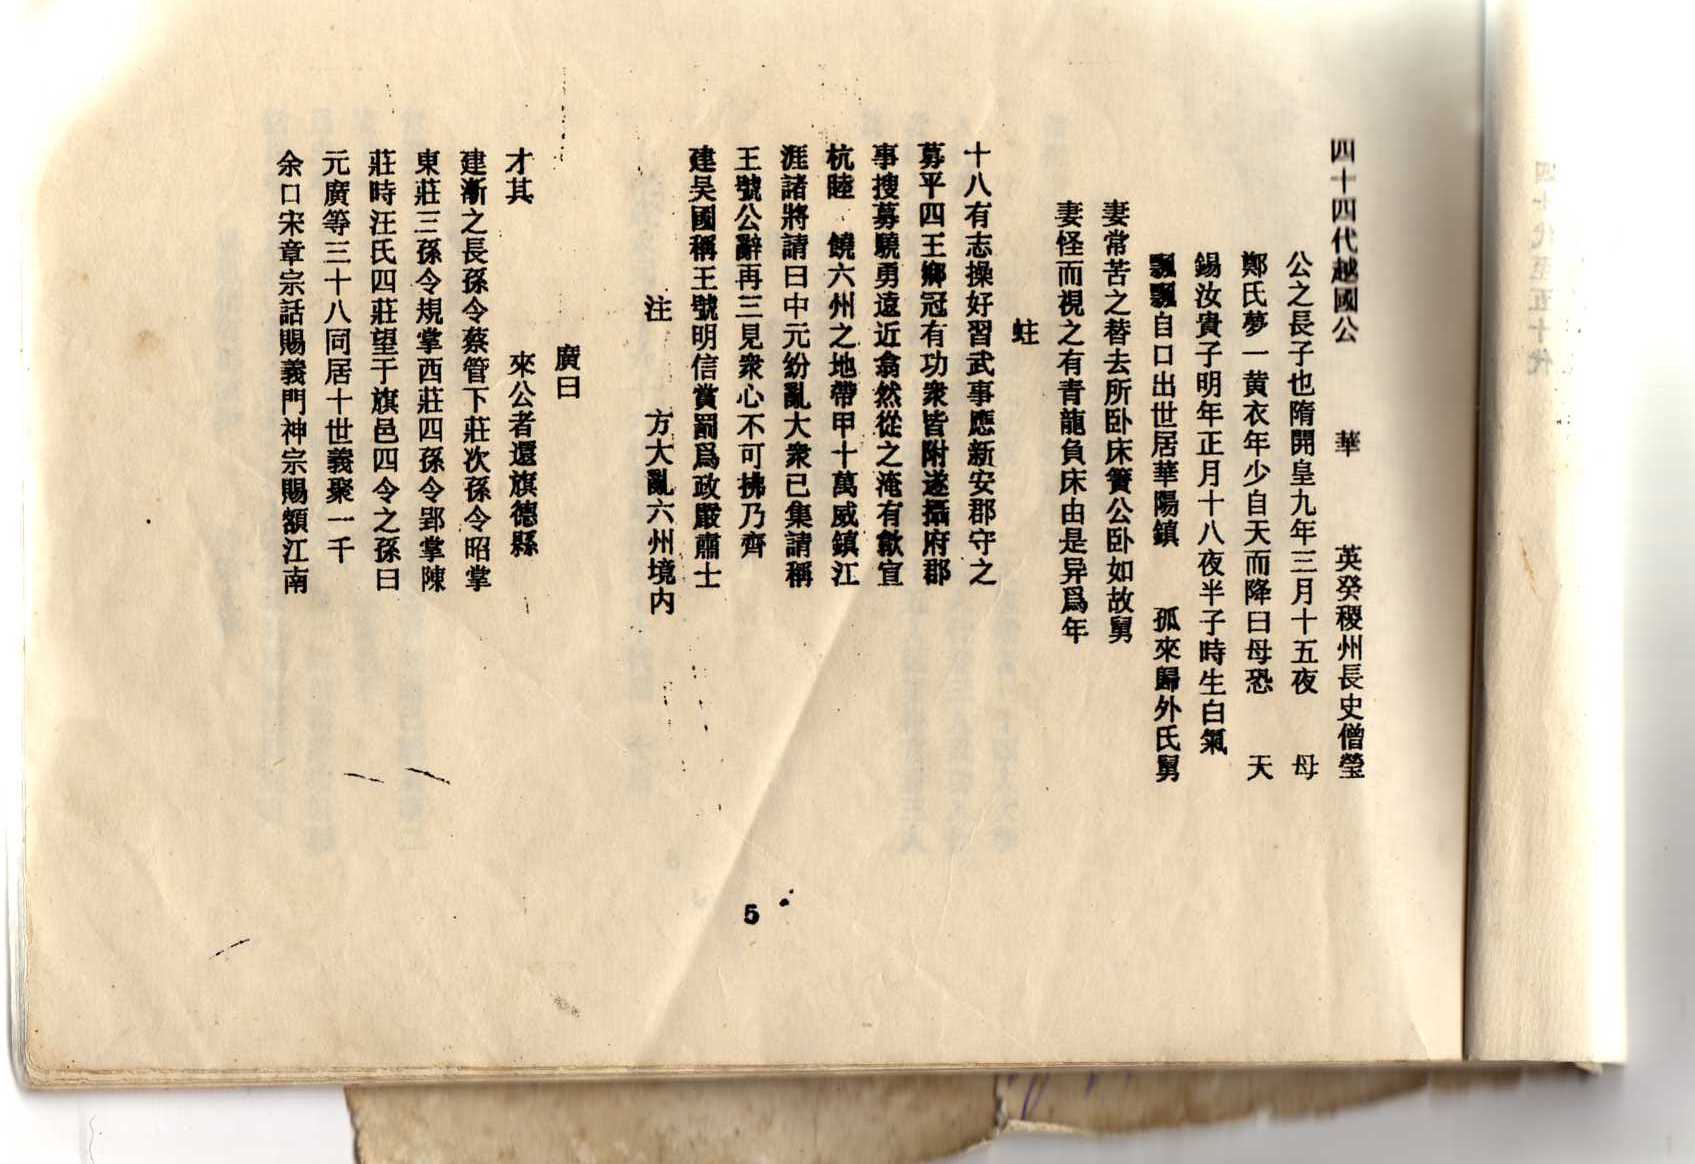 四十四代越國公 華 英癸稷州長史僧瑩
公之長子也隋開皇九年三月十五夜 母
鄭氏夢一黄衣年少自天而降曰母恐 天
錫汝貴子明年正月十八夜半子時生白氣
飄飄自口出世居華陽鎮 孤來歸外氏舅
妻常苦之替去所卧床簀公卧如故舅
妻怪而視之有青龍負床由是异爲年
蛀
十八有志操好習武事應新安郡守之
募平四王鄉冠有功衆皆附遂攝府郡
事搜募驍勇遠近翕然從之淹有歙宣
杭睦 饒六州之地帶甲十萬威鎮江
涯諸將請曰中元紛亂大衆已集請稱
王號公辭再三見衆心不可拂乃齊
建吴國稱王號明信賞罰爲政嚴肅士
注 方大亂六州境内
廣曰
才其 來公者還旗德縣
建漸之長孫令蔡管下莊次孫令昭掌
東莊三孫令規掌西莊四孫令郢掌陳
莊時汪氏四莊望于旗邑四令之孫曰
元廣等三十八同居十世義聚一千
余口宋章宗話賜義門神宗賜額江南
5